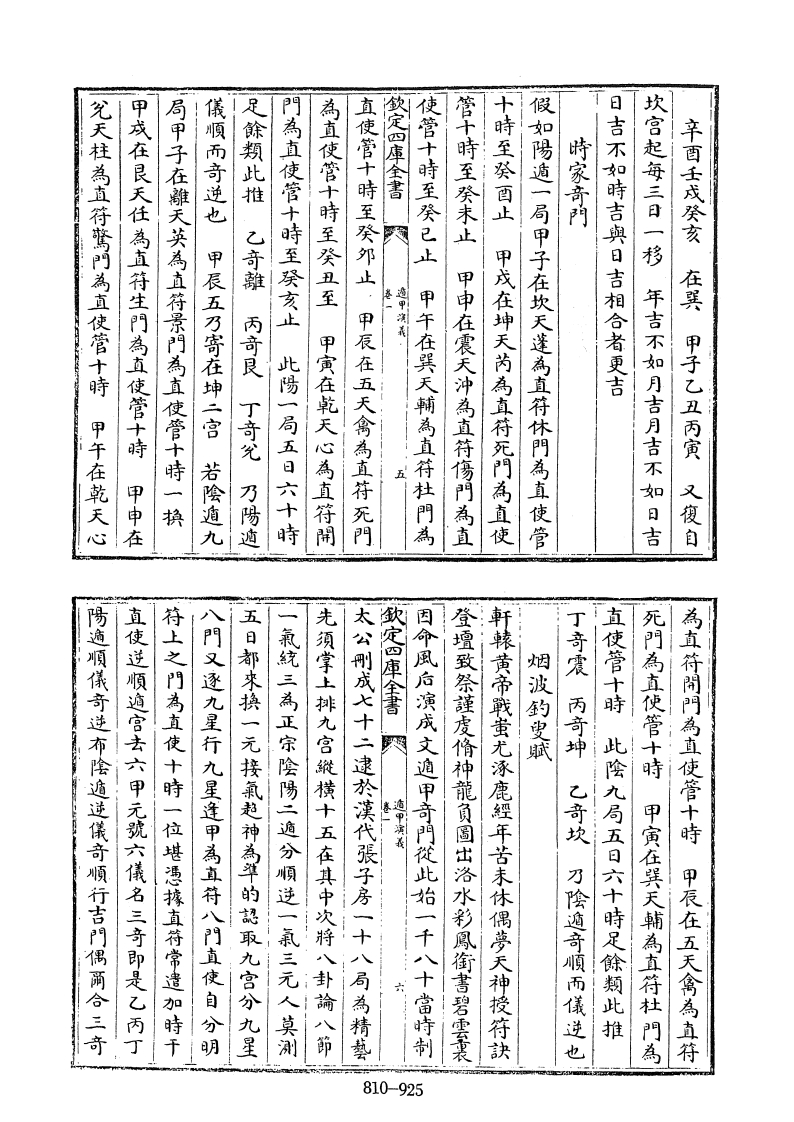 辛酉壬戌癸亥　在巽　甲子乙丑丙寅　又復自
坎宫起每三日一移　年吉不如月吉月吉不如日吉
日吉不如時吉與日吉相合者更吉
時家奇門
假如陽遁一局甲子在坎天蓬為直符休門為直使管
十時至癸酉止　甲戌在坤天芮為直符死門為直使
管十時至癸未止　甲申在震天沖為直符傷門為直
使管十時至癸已止　甲午在巽天輔為直符杜門為
欽定四庫全書
遁甲演義
卷一
五
直使管十時至癸夘止　甲辰在五天禽為直符死門
為直使管十時至癸丑至　甲寅在乾天心為直符開
門為直使管十時至癸亥止　此陽一局五日六十時
足餘類此推　乙奇離　丙奇艮　丁奇兊　乃陽遁
儀順而奇逆也　甲辰五乃寄在坤二宫　若陰遁九
局甲子在離天英為直符景門為直使管十時一換
甲戌在艮天任為直符生門為直使管十時　甲申在
兊天柱為直符驚門為直使管十時　甲午在乾天心
為直符開門為直使管十時　甲辰在五天禽為直符
死門為直使管十時　甲寅在巽天輔為直符杜門為
直使管十時　此陰九局五日六十時足餘類此推
丁奇震　丙奇坤　乙奇坎　乃陰遁奇順而儀逆也
烟波釣叟賦
軒轅黄帝戰蚩尤涿鹿經年苦未休偶夢天神授符訣
登壇致祭謹虔脩神龍負圖出洛水彩鳳銜書碧雲裏
因命風后演成文遁甲奇門從此始一千八十當時制
欽定四庫全書
遁甲演義
卷一
六
太公刪成七十二逮於漢代張子房一十八局為精藝
先須掌上排九宫縱橫十五在其中次將八卦論八節
一氣統三為正宗陰陽二遁分順逆一氣三元人莫測
五日都來換一元接氣超神為準的認取九宫分九星
八門又逐九星行九星逢甲為直符八門直使自分明
符上之門為直使十時一位堪憑據直符常遣加時干
直使逆順遁宫去六甲元號六儀名三奇即是乙丙丁
陽遁順儀奇逆布陰遁逆儀奇順行吉門偶爾合三奇
810-925